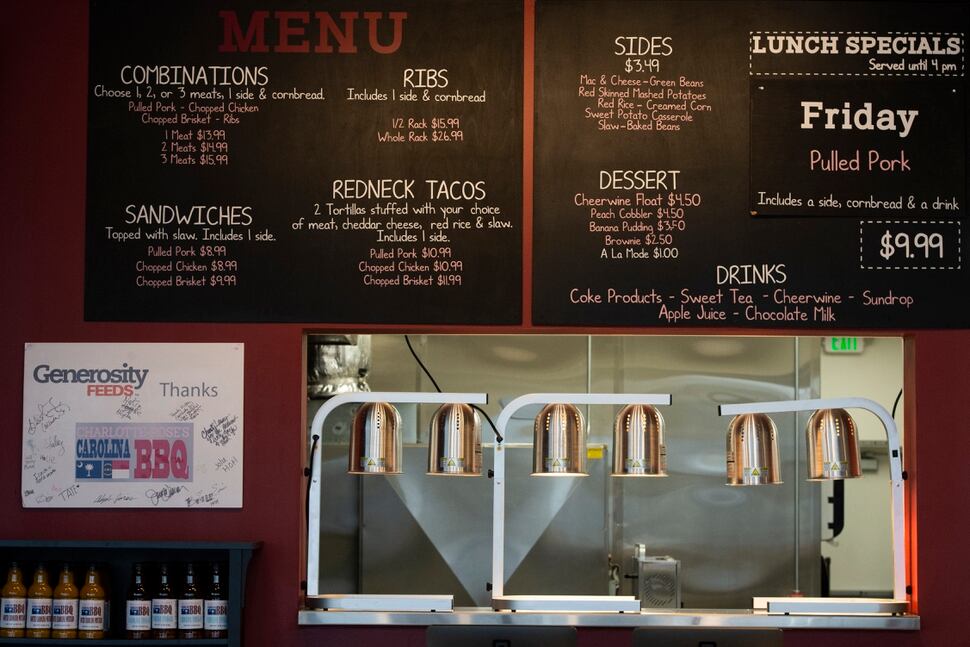 MENU
COMBINATIONS
Choose 1, 2, or 3 meats, 1 side & cornbread.
Pulled Pork - Chopped Chicken
Chopped Brisket - Ribs
1 Meat $13.99
2 Meats $14.99
3 Meats $15.99
RIBS
Includes 1 side & cornbread
1/2 Rack $15.99
Whole Rack $26.99
SANDWICHES
Topped with slaw. Includes 1 side.
Pulled Pork $8.99
Chopped Chicken $8.99
Chopped Brisket $9.99
REDNECK TACOS
2 Tortillas stuffed with your choice
of meat, cheddar cheese, red rice & slaw.
Includes 1 side.
Pulled Pork $10.99
Chopped Chicken $10.99
Chopped Brisket $11.99
SIDES
$3.49
Mac & Cheese-Green Beans
Red Skinned Mashed Potatoes
Red Rice - Creamed Corn
Sweet Potato Casserole
Slaw-Baked Beans
DESSERT
Cheerwine Float $4.50
Peach Cobbler $4.50
Banana Pudding $3.50
Brownie $2.50
A La Mode $1.00
DRINKS
Coke Products - Sweet Tea - Cheerwine - Sundrop
Apple Juice - Chocolate Milk
LUNCH SPECIALS
Served until 4 pm
Friday
Pulled Pork
Includes a side, cornbread & a drink
$9.99
EXIT
Generosity
FEEDS
Thanks
CHARLOTTE-ROSE'S
CAROLINA
BBQ
TATE
BBQ
BBQ
BBQ
BBQ
BBQ
BBQ
BBQ
BBQ